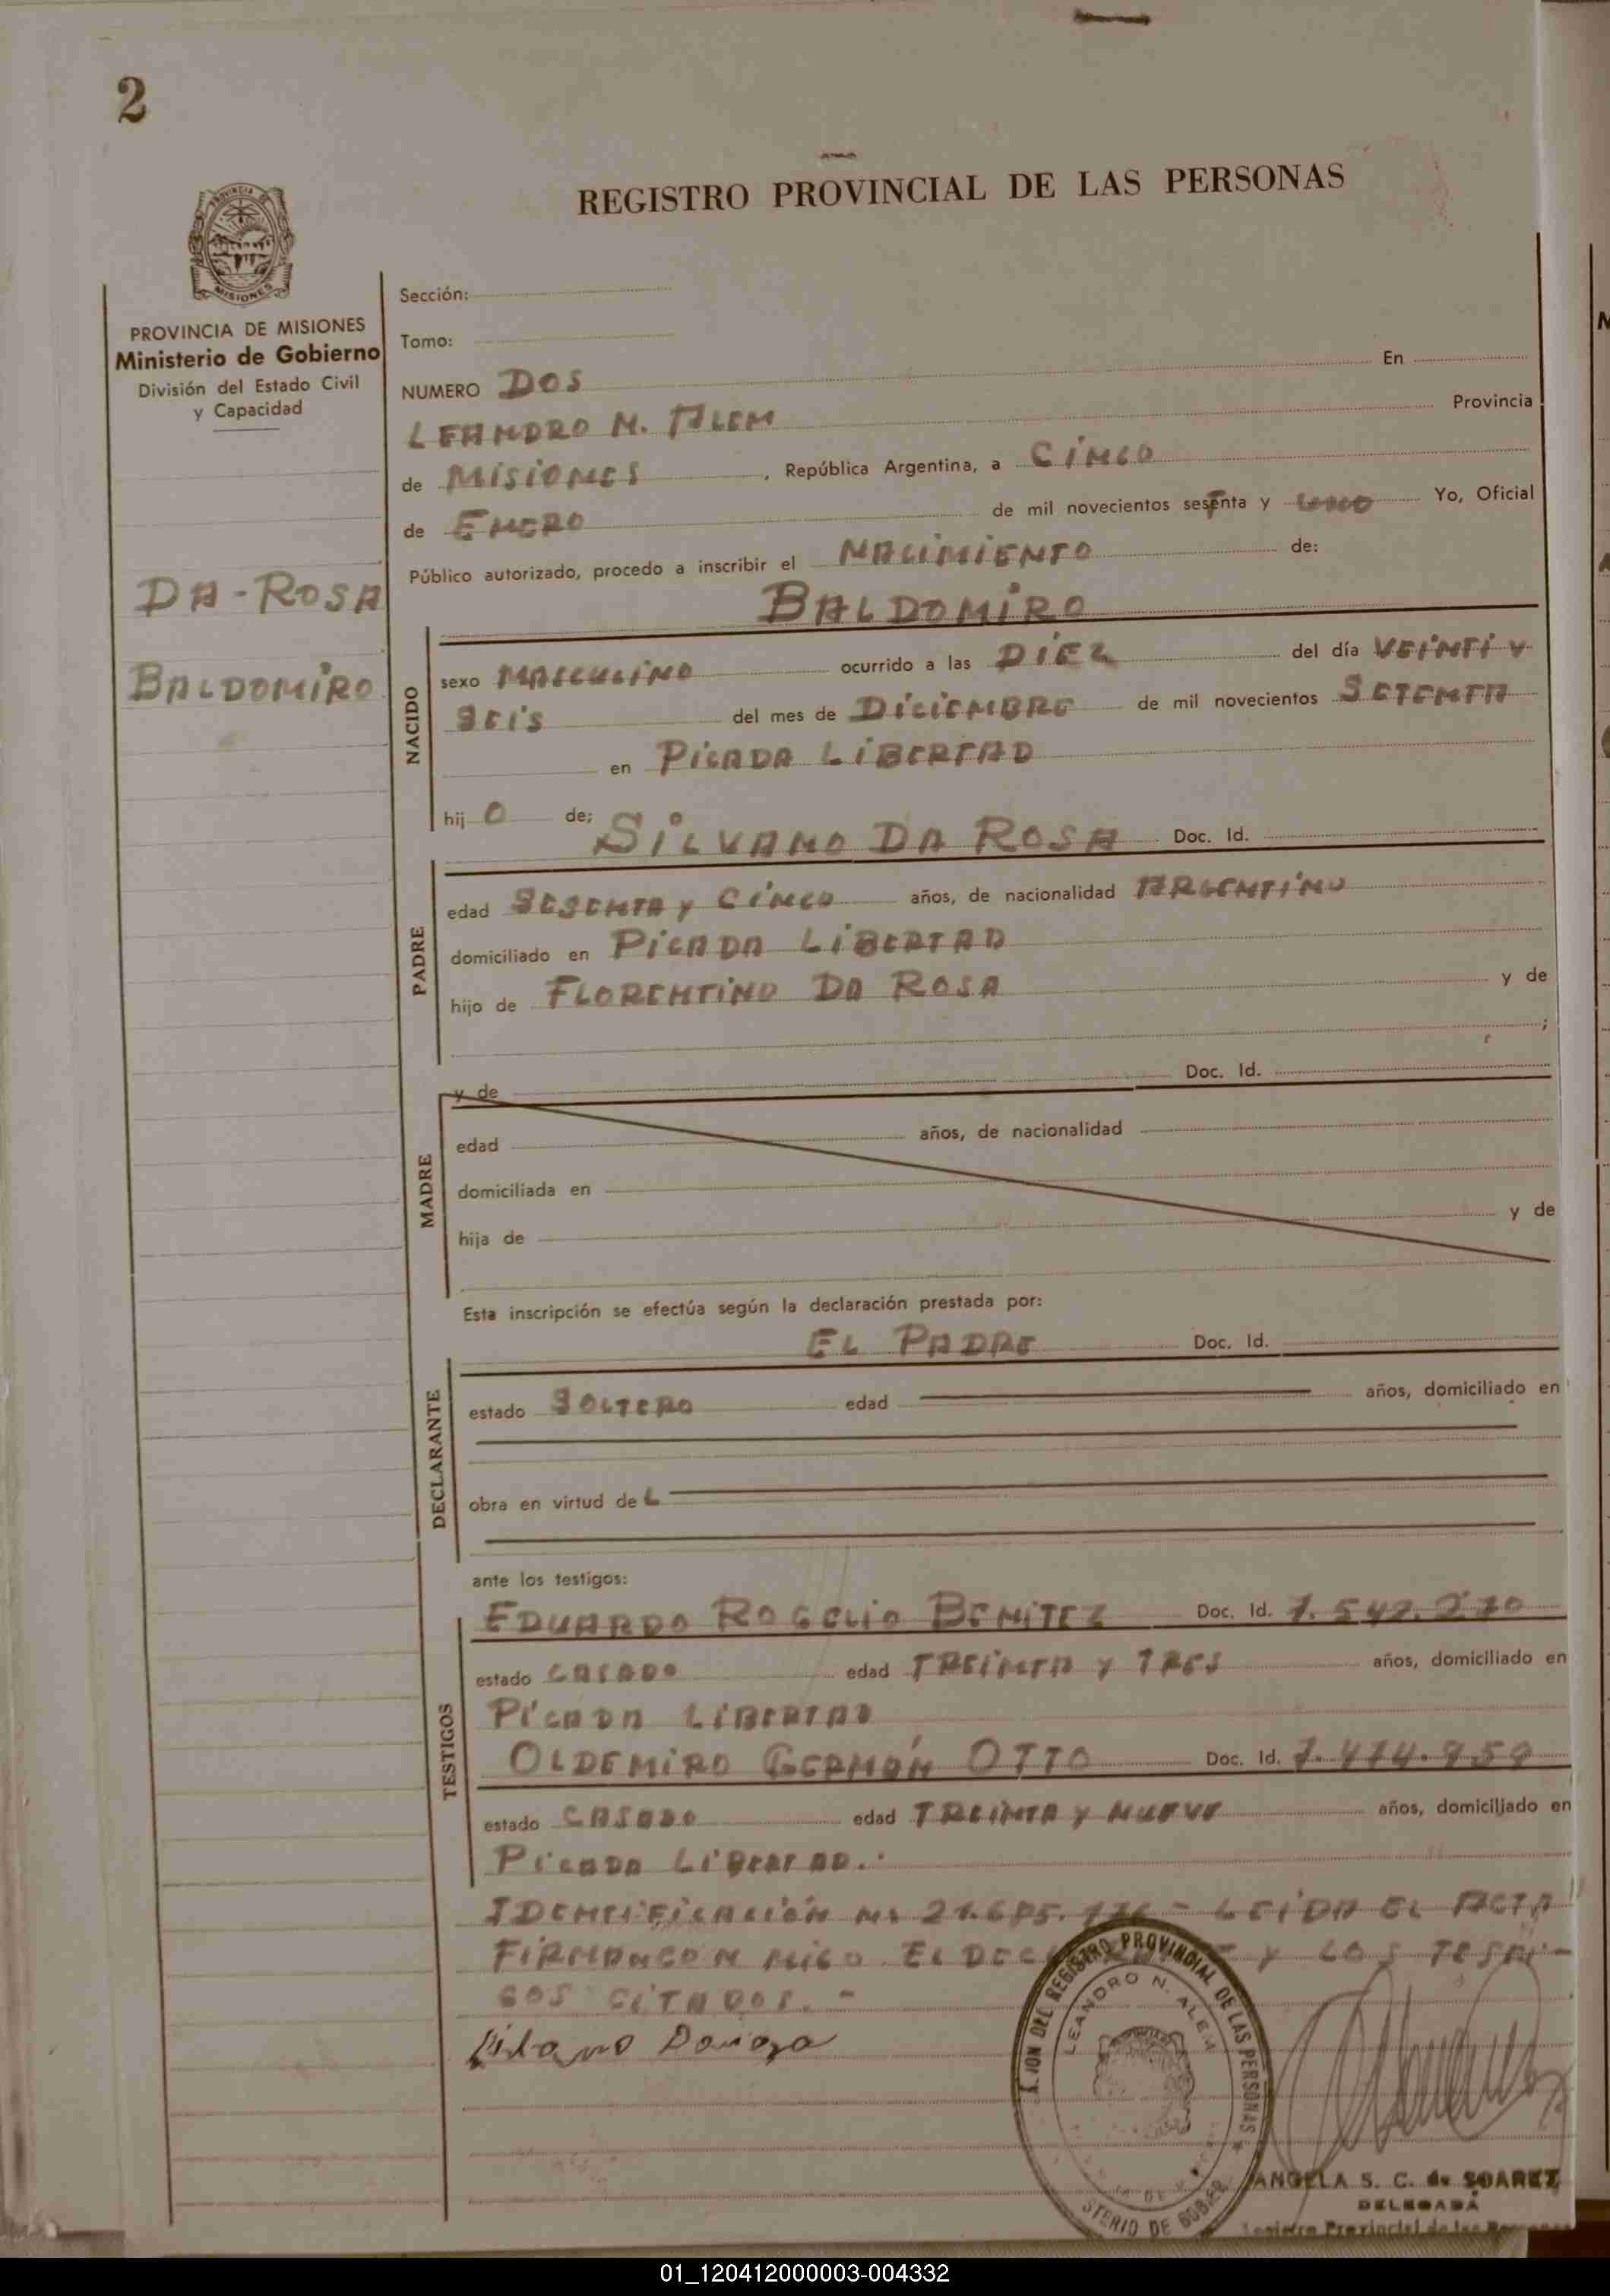 2
REGISTRO PROVINCIAL DE LAS PERSONAS
PROVINCIA
MISIONES
PROVINCIA DE MISIONES
Ministerio de Gobierno
División del Estado Civil
y Capacidad
DA-ROSA
BALDOMIRO
Sección:
Tomo:
NUMERO DOS En
LEANDRO N. ALEM Provincia
de MISIONES, República Argentina, a CINCO
de ENERO de mil novecientos sesenta y UNO Yo, Oficial
Público autorizado, procedo a inscribir el NACIMIENTO de:
BALDOMIRO
NACIDO
sexo MASCULINO ocurrido a las DIEZ del día VEINTI Y
SEIS del mes de DICIEMBRE de mil novecientos SETENTA
en PICADA LIBERTAD
hij O de;
SILVANO DA ROSA Doc. Id.
PADRE
edad SESENTA Y CINCO años, de nacionalidad ARGENTINO
domiciliado en PICADA LIBERTAD
hijo de FLORENTINO DA ROSA y de
;
y de Doc. Id.
MADRE
edad años, de nacionalidad
domiciliada en
hija de y de
Esta inscripción se efectúa según la declaración prestada por:
EL PADRE Doc. Id.
DECLARANTE
estado SOLTERO edad años, domiciliado en
obra en virtud de L
ante los testigos:
EDUARDO ROGELIO BENITEZ Doc. Id. 7.542.270
TESTIGOS
estado CASADO edad TREINTA Y TRES años, domiciliado en
PICADA LIBERTAD
OLDEMIRO GERMÁN OTTO Doc. Id. 7.474.959
estado CASADO edad TREINTA Y NUEVE años, domiciliado en
PICADA LIBERTAD.
IDENTIFICACIÓN Nº 21.685.176 - LEIDA EL ACTA
FIRMAN CON MIGO EL Y LOS TESTI-
GOS CITADOS. -
REGISTRO PROVINCIAL DE LAS PERSONAS
LEANDRO N. ALEM
ANGELA S. C. de SUAREZ
DELEGADA
Registro Provincial de las
01_120412000003-004332